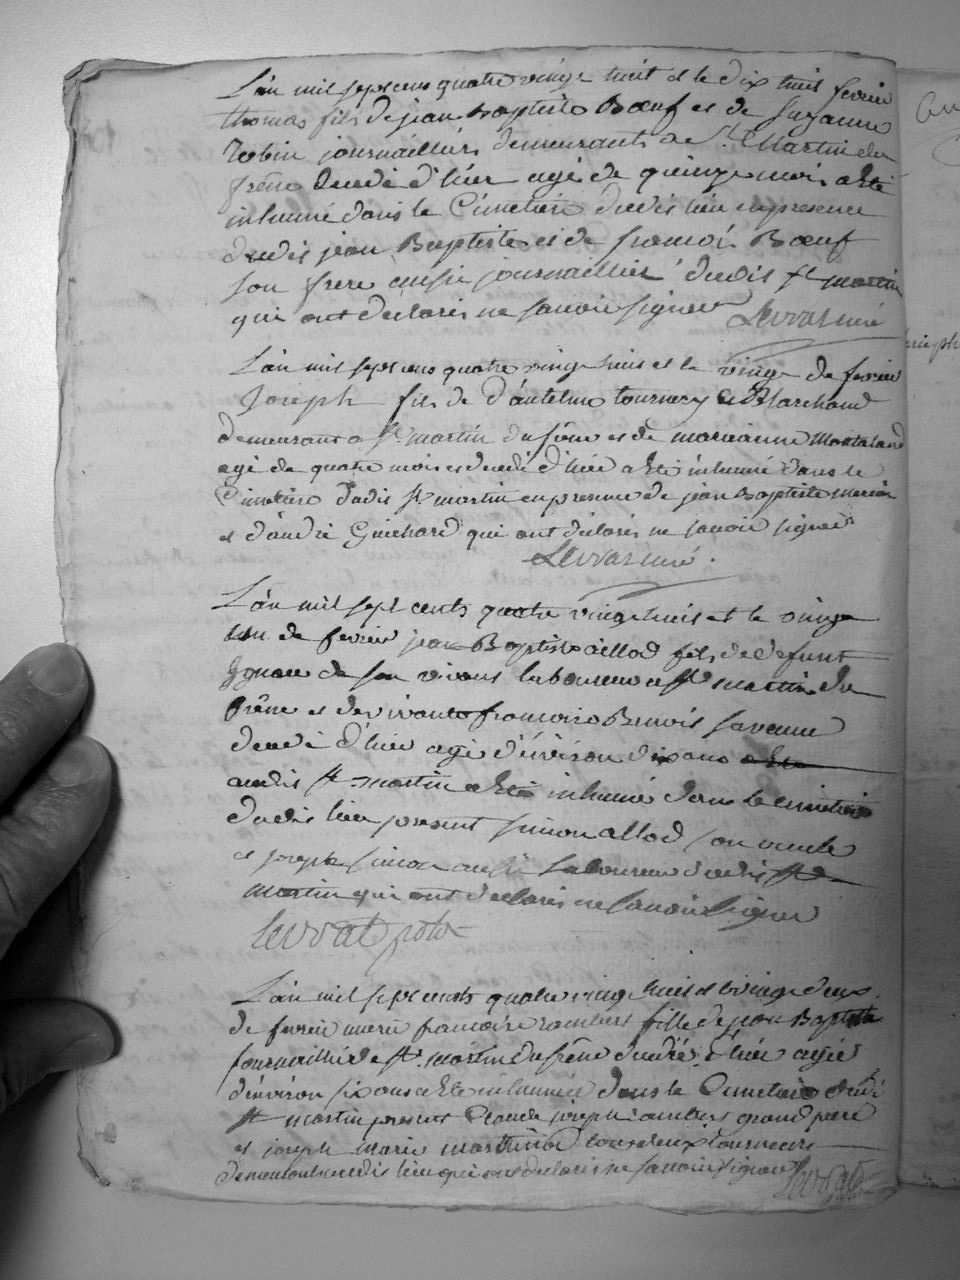 L'an mil sept cens quatre vingt huit et le dix huit fevrier
thomas fils de jean Baptiste Bœuf et de Suzanne
Robin journailliers demeurants a St Martin du
frêne decedé d'hier agé de quinze mois a eté
inhumé dans le Cimetiere dudit lieu en presence
dudit jean Baptiste et de francois Bœuf
son frere aussi journaillier dudit st martin
qui ont declarés ne savoir signer
L'an mil sept cens quatre vingt huit et le vingt de fevrier
Joseph fils de d'antelme tournery Marchand
demeurant a St martin du frêne et de marianne
agé de quatre mois et decedé d'hier a eté inhumé dans le
Cimetiere dudit St martin en presence de jean Baptiste
et d'andré Guichard qui ont declarés ne savoir signer
L'an mil sept cents quatre vingt huit et le vingt
un de fevrier jean Baptiste allod fils de defunt
Ygnace de son vivant laboureur a st martin du
frêne et de vivante francoise Benoit savanne
decedé d'hier agé d'environ dix ans a eté
audit st martin a eté inhumé dans le cimetiere
dudit lieu present simon allod son oncle
et joseph simon aussi laboureur dudit st
martin qui ont declarés ne savoir signer
L'an mil sept cents quatre vingt huit et le vingt deux
de fevrier marie francoise fille de jean Baptiste
journaillier de st martin du frêne decedée d'hier agée
d'environ six ans a eté inhumée dans le Cimetiere dudit
st martin present Claude joseph grand pere
et joseph marie tous deux tourneurs
demeurants audit lieu qui ont declarés ne savoir signer